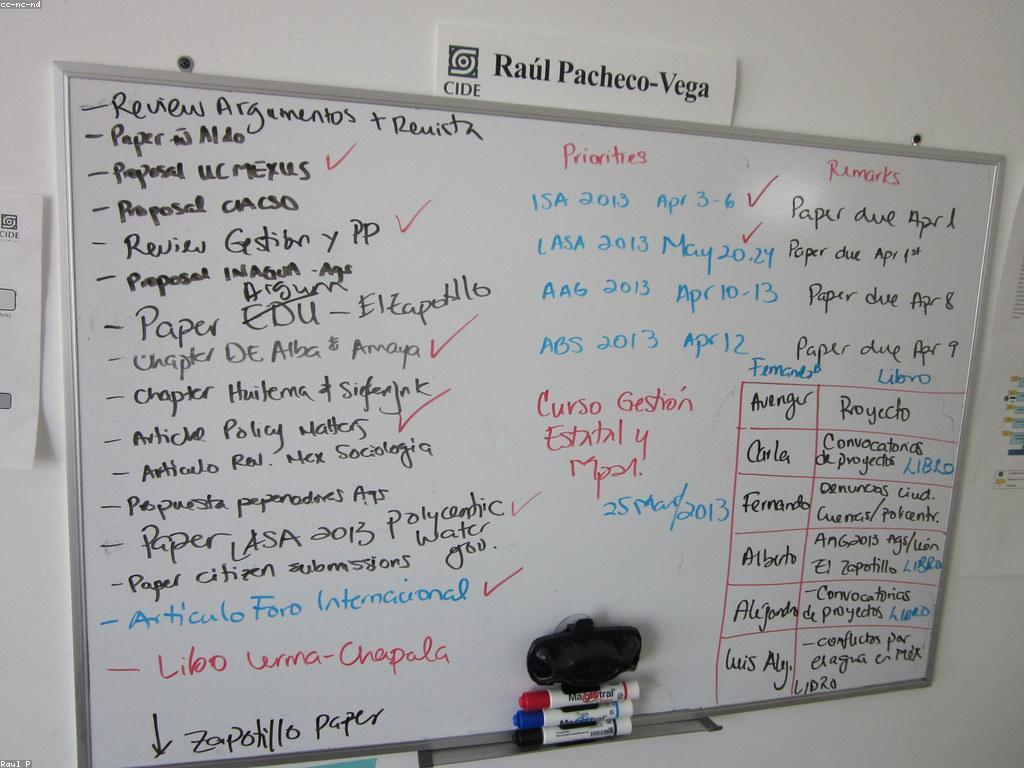 cc-nc-nd
CIDE
Raúl Pacheco-Vega
CIDE
- Review Argumentos + Revista
- Paper Aldo
- Proposal UC MEXUS ✓
- Proposal CIACSO
- Review Gestión y PP ✓
- Proposal INAGUA - Ags
Argum
- Paper EDU - El Zapotillo
- Chapter DE Alba & Amaya ✓
- Chapter Huitema &
- Article Policy Matters ✓
- Artículo Rev. Mex Sociología
- Propuesta pepenadores Ags
- Paper LASA 2013 Polycentric ✓
Water
gov.
- Paper citizen submissions
- Artículo Foro Internacional ✓
- Libro Lerma-Chapala
↓ Zapotillo paper
Priorities
Remarks
ISA 2013 Apr 3-6 ✓ Paper due Apr 1
LASA 2013 May 20.24 ✓ Paper due Apr 1st
AAG 2013 Apr 10-13 Paper due Apr 8
ABS 2013 Apr 12 Paper due Apr 9
Curso Gestión
Estatal y
Mpal.
25 Mar/2013
Fernando Libro
Avenger Proyecto
Carla Convocatorias
de proyectos LIBRO
Fernando Denuncias Ciud.
Cuencas/policentr.
Alberto AAG2013 Ags/León
El Zapotillo LIBRO
Alejandra - Convocatorias
de proyectos LIBRO
Luis Alej. - conflictos por
el agua en Méx
LIBRO
Magistral
Magistral
Raul P